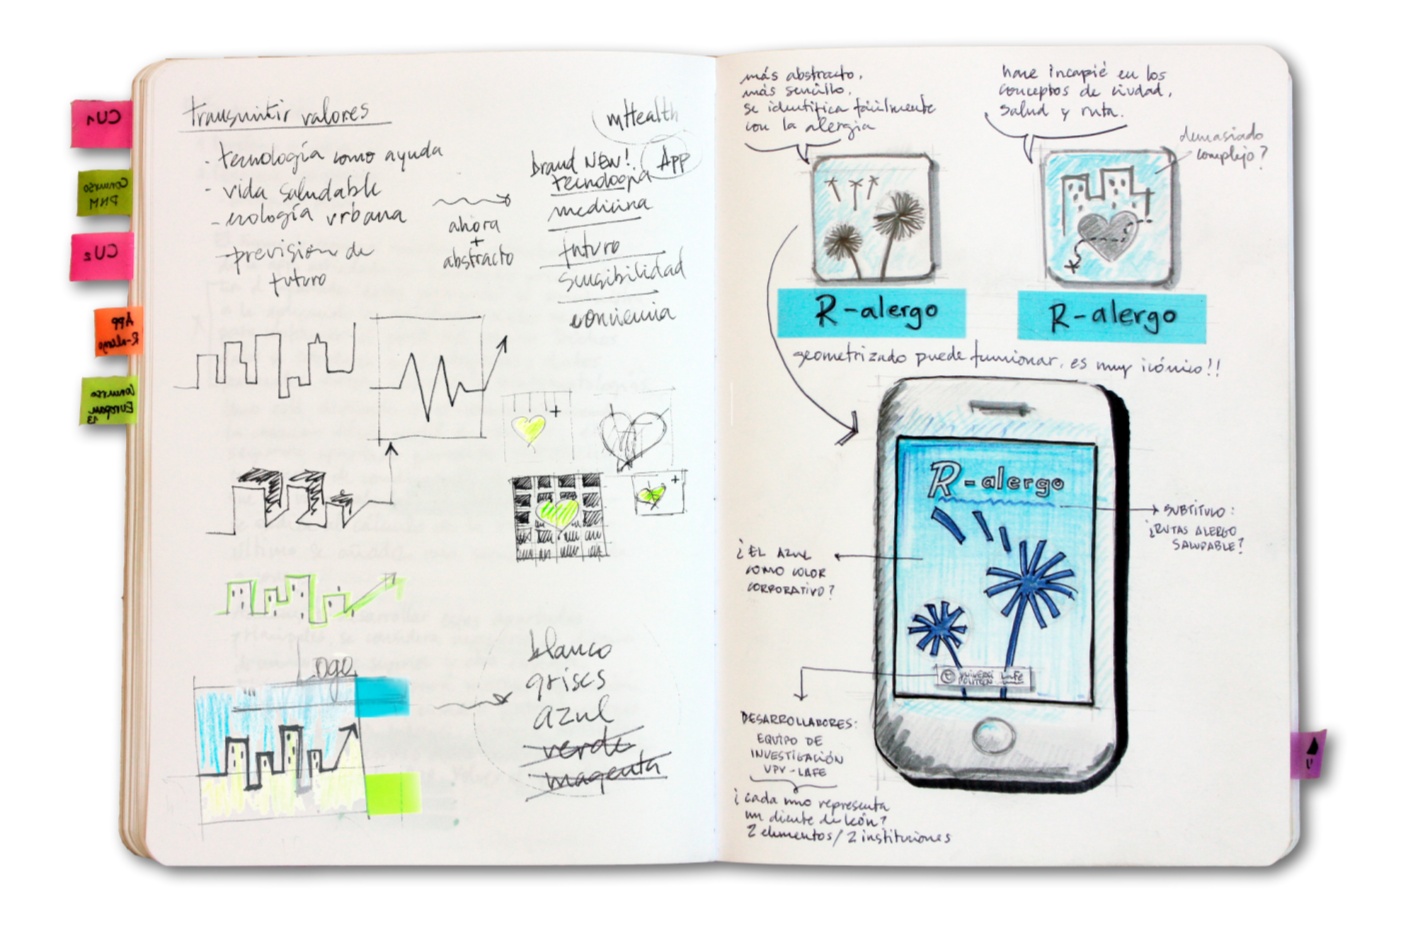 transmitir valores
- tecnología como ayuda
- vida saludable
- ecología urbana
- prevision de
futuro
ahora
+
abstracto
mHealth
App
brand NEW!
tecnología
medicina
futuro
sensibilidad
conciencia
Logo
blanco
grises
azul
verde
magenta
CU1
Concurso
PNM
CU2
App
R-alergo
Concurso
Europan
13
más abstracto,
más sencillo,
se identifica fácilmente
con la alergia
hace incapié en los
conceptos de ciudad,
salud y ruta.
demasiado
complejo?
R-alergo
R-alergo
geometrizado puede funcionar, es muy icónico!!
R-alergo
SUBTITULO:
¿RUTAS ALERGO
SALUDABLE?
¿EL AZUL
COMO COLOR
CORPORATIVO?
DESARROLLADORES:
EQUIPO DE
INVESTIGACIÓN
UPV-LAFE
¿cada uno representa
un diente de león?
2 elementos/2 instituciones